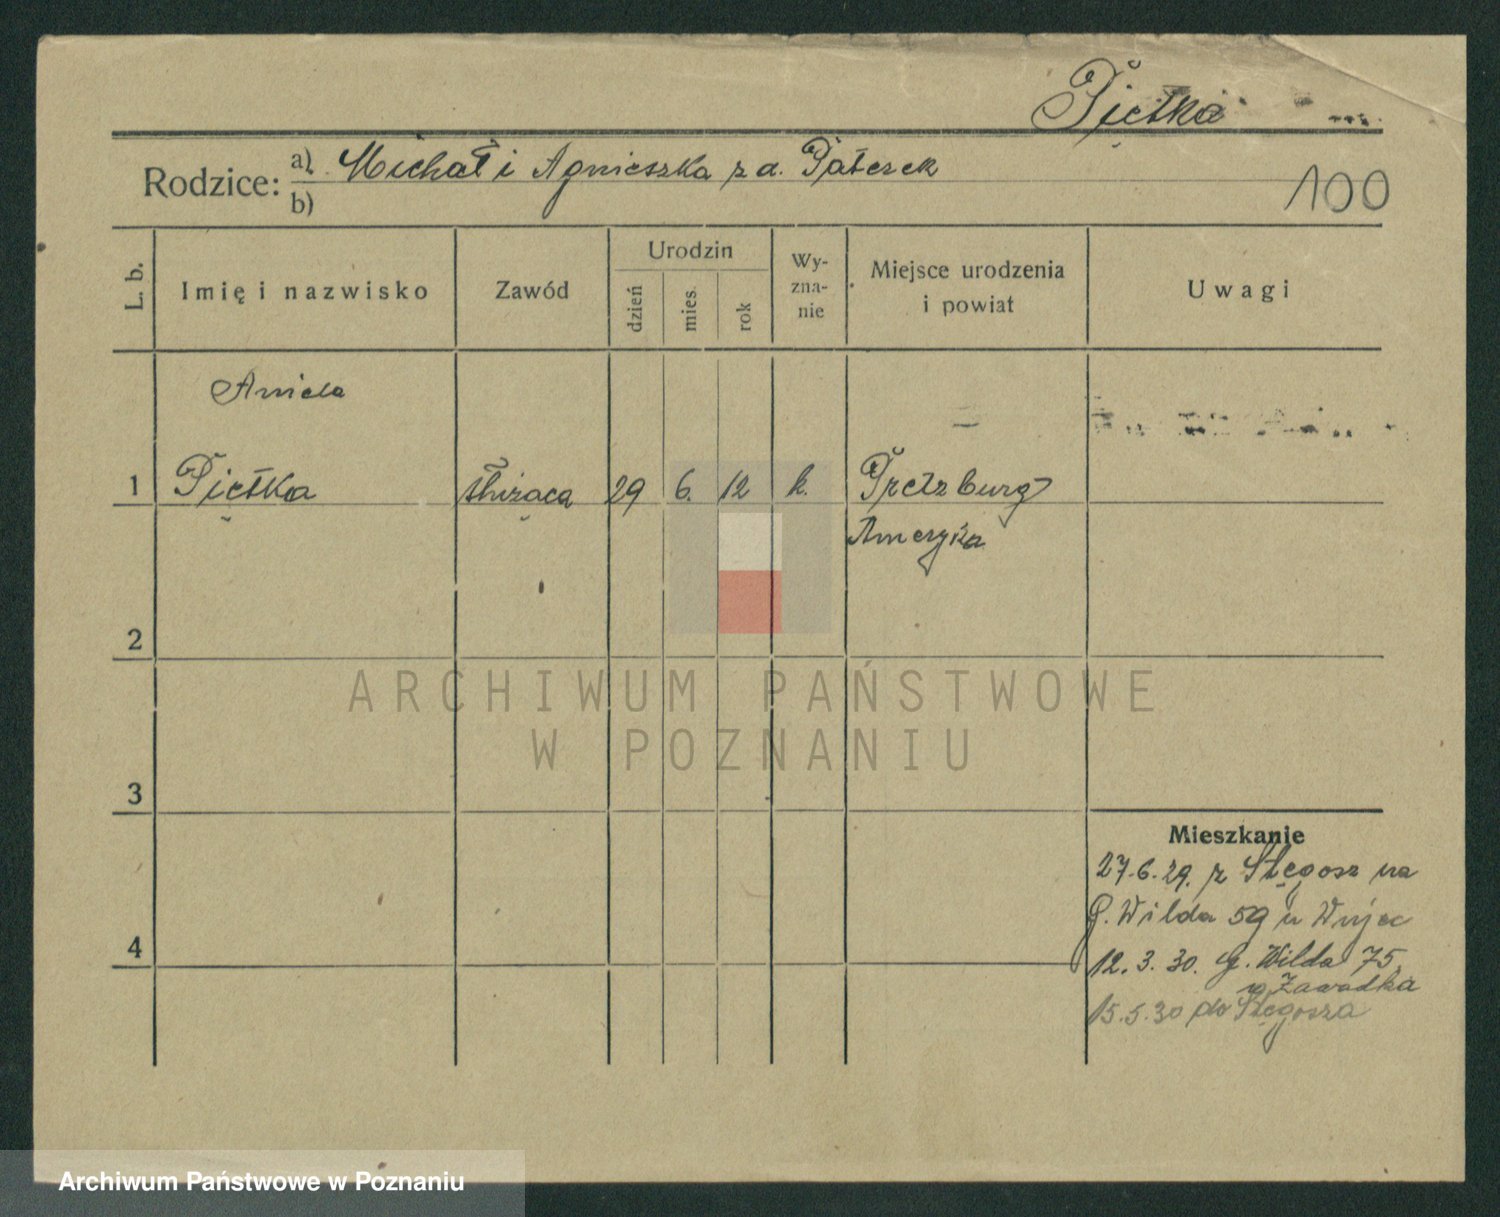 Piętka
Rodzice: a) Michał i Agnieszka z d. Paterek
b)
100
L. b.
Imię i nazwisko
Zawód
Urodzin
dzień
mies.
rok
Wy-
zna-
nie
Miejsce urodzenia
i powiat
Uwagi
Aniela
1 Piętka służąca 29 6. 12 k. Pretzburg
Ameryka
2
3
4
Mieszkanie
27.6.29. z Stęgosz na
G. Wilda 59 u Wujec
12.3.30. G. Wilda 75
u Zawadka
15.5.30 do Stęgosza
ARCHIWUM PAŃSTWOWE
W POZNANIU
Archiwum Państwowe w Poznaniu